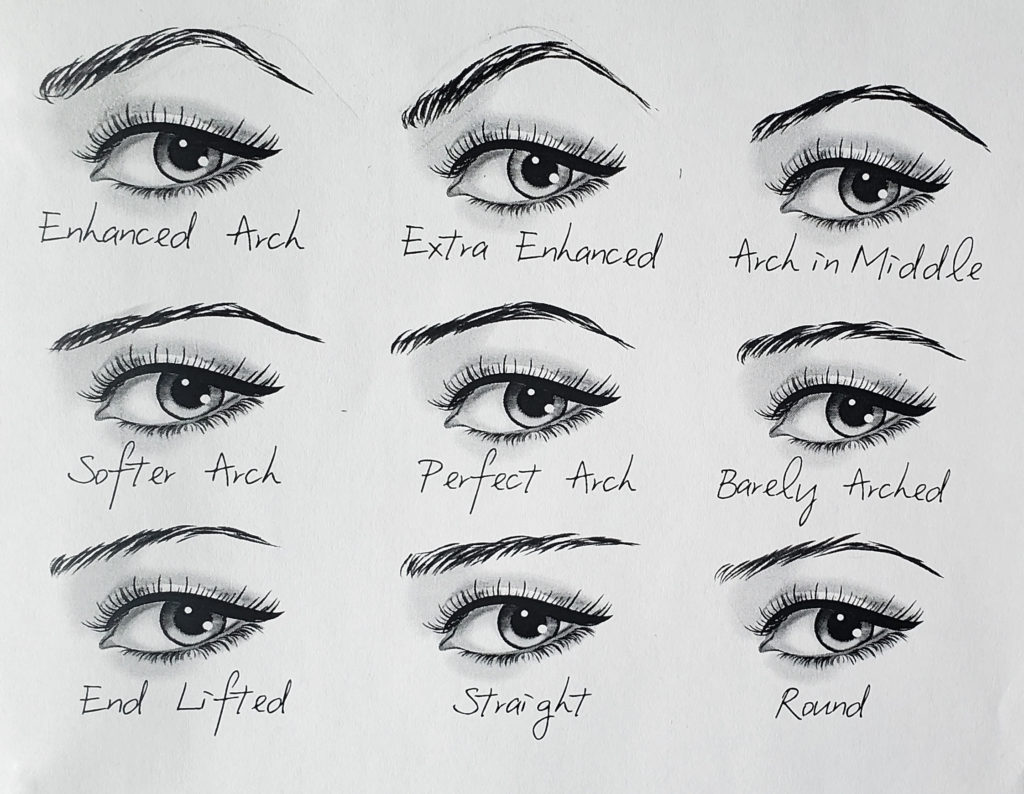 Enhanced Arch
Extra Enhanced
Arch in Middle
Softer Arch
Perfect Arch
Barely Arched
End Lifted
Straight
Round